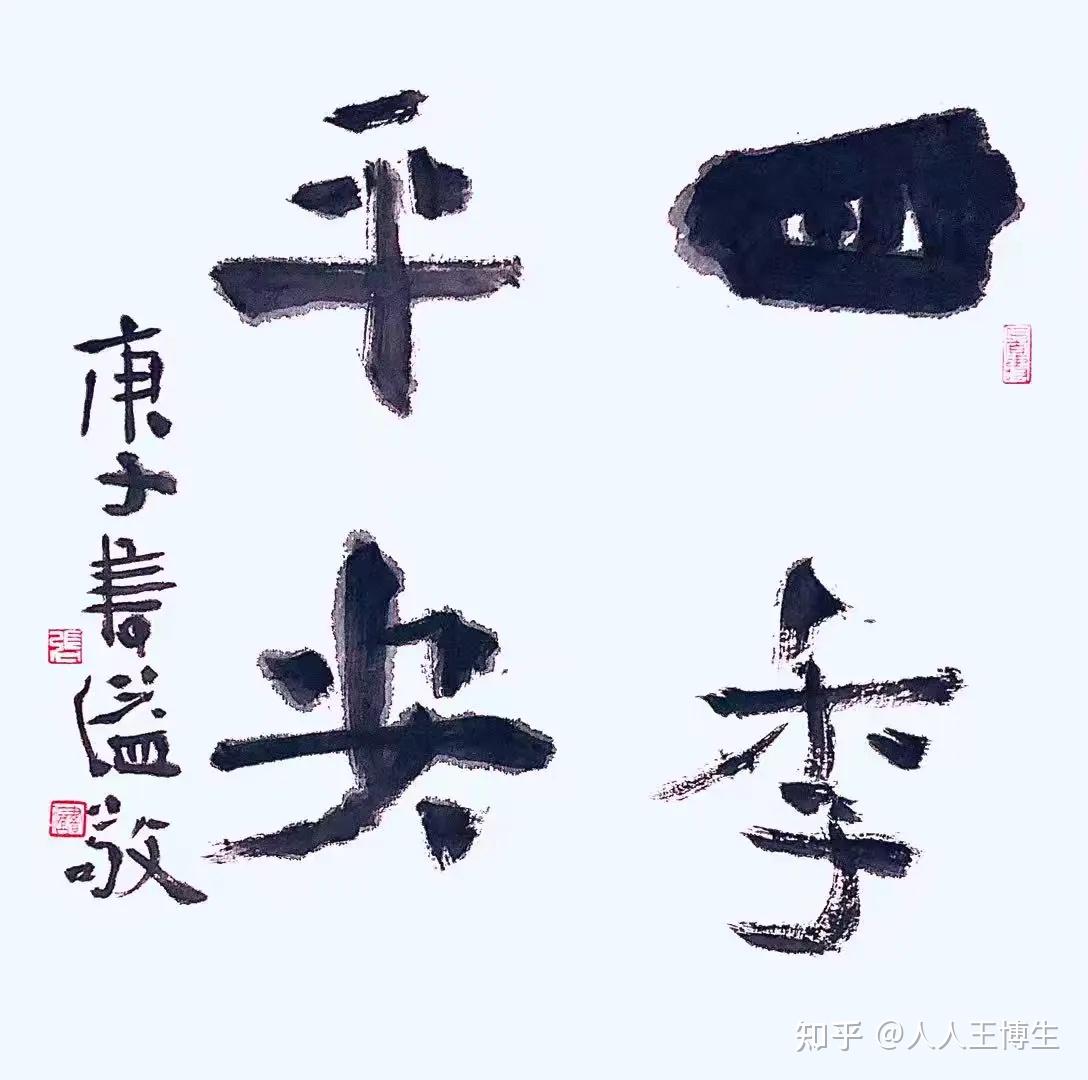 四季
平安
庚子書溢敬
張
知乎 @人人王博生